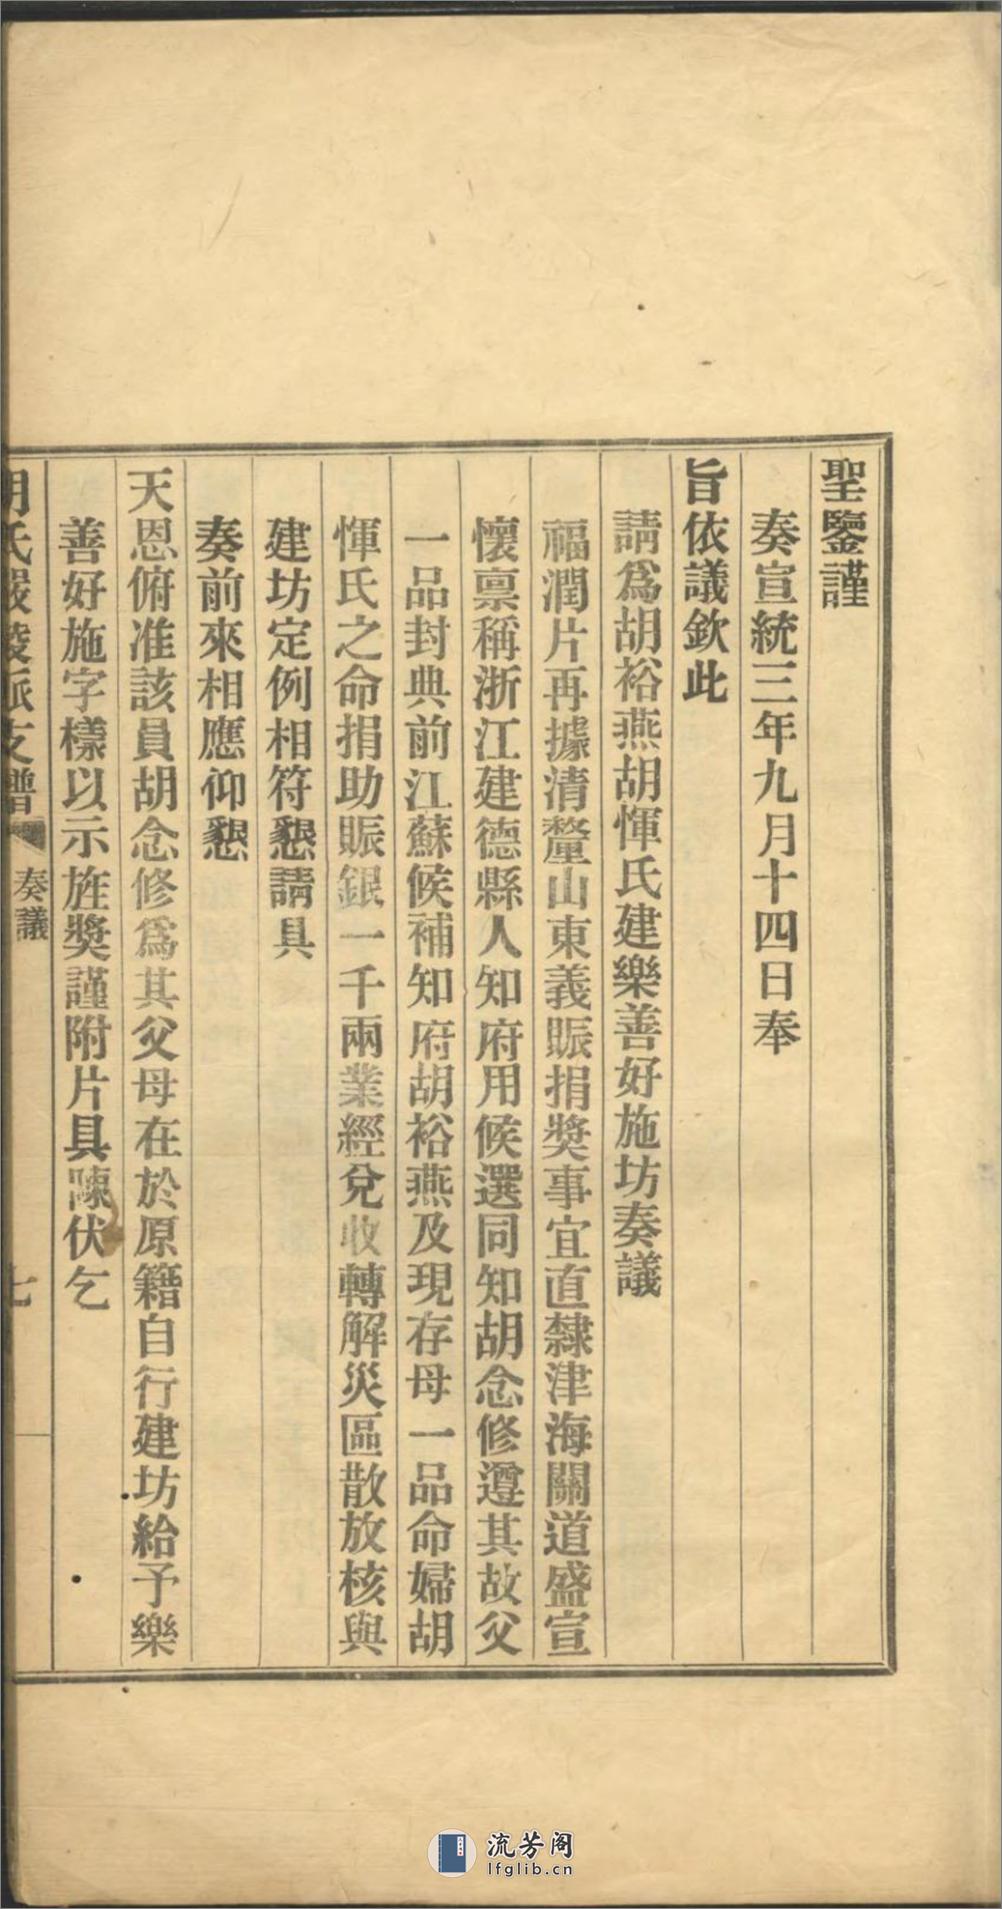 聖鑒謹
奏宣統三年九月十四日奉
旨依議欽此
請爲胡裕燕胡惲氏建樂善好施坊奏議
福潤片再據清釐山東義賑捐獎事宜直隸津海關道盛宣
懷禀稱浙江建德縣人知府用候選同知胡念修遵其故父
一品封典前江蘇候補知府胡裕燕及現存母一品命婦胡
惲氏之命捐助賑銀一千兩業經兌收轉解災區散放核與
建坊定例相符懇請具
奏前來相應仰懇
天恩俯准該員胡念修爲其父母在於原籍自行建坊給予樂
善好施字樣以示旌獎謹附片具陳伏乞
胡氏嚴陵派支譜 奏議 七
流芳阁
lfglib.cn